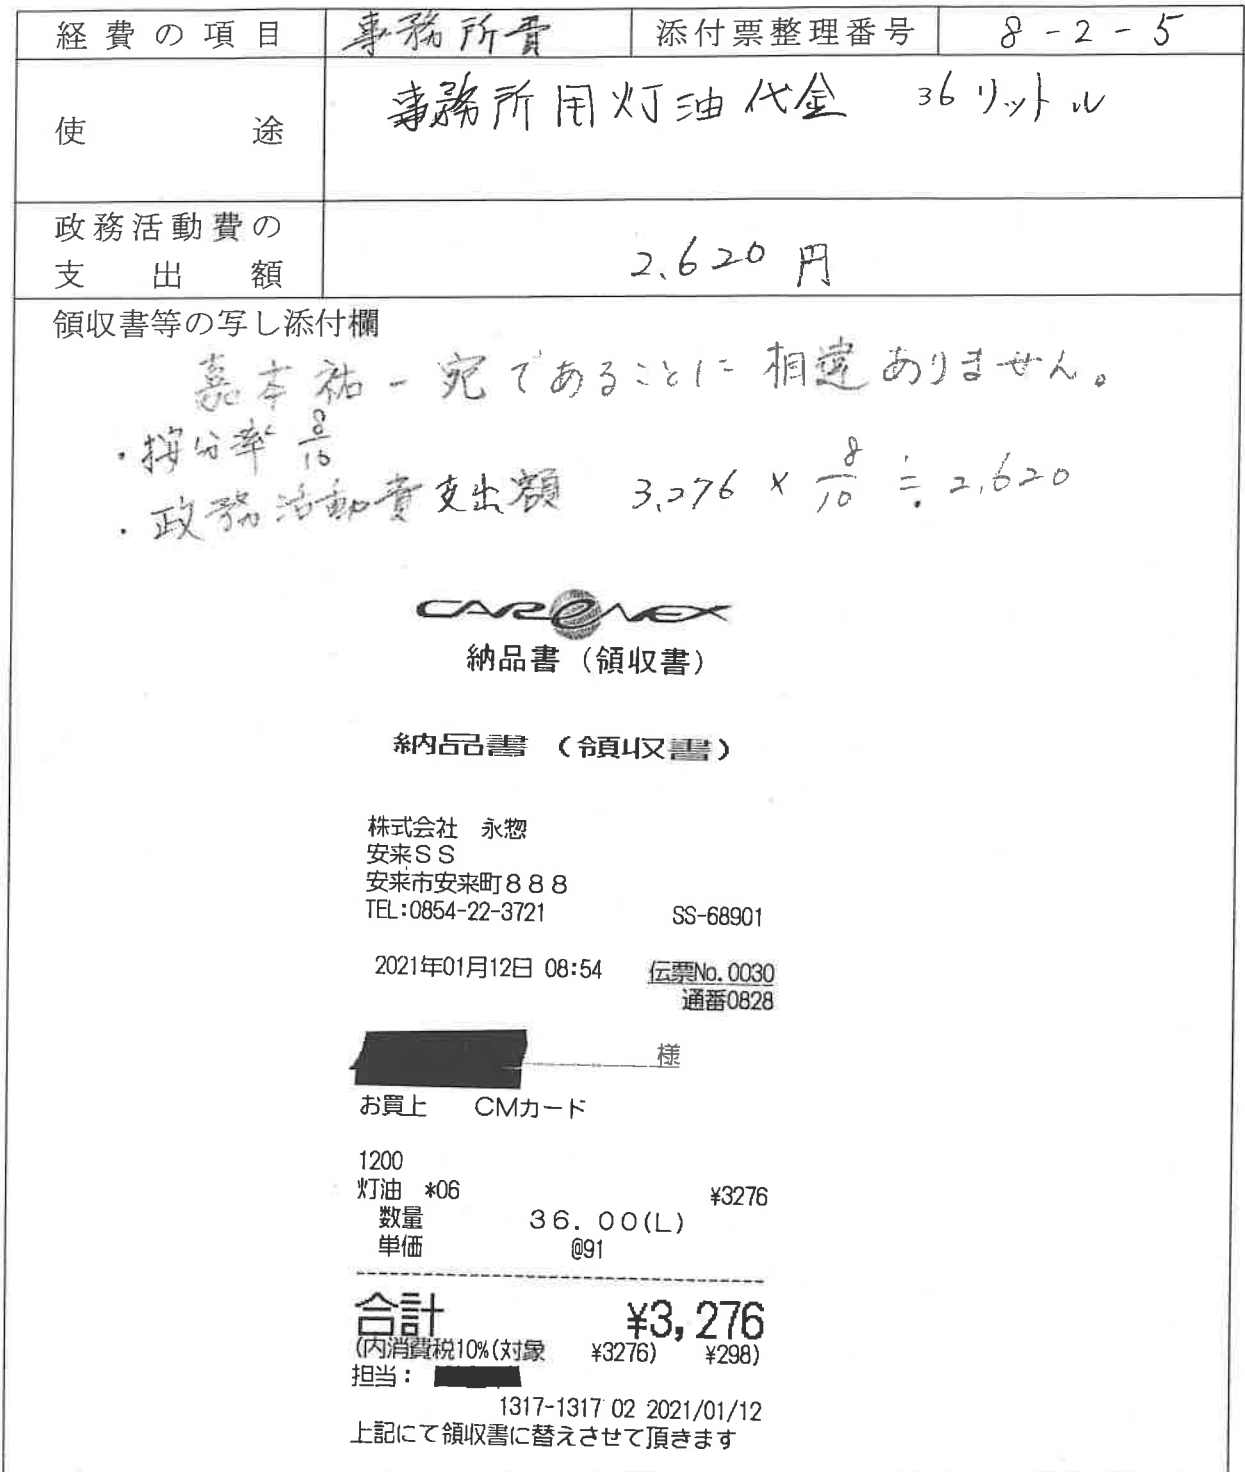 経費の項目 事務所費 添付票整理番号 8-2-5
使途 事務所用灯油代金 36リットル
政務活動費の
支出額 2,620円
領収書等の写し添付欄
嘉本祐一宛であることに相違ありません。
・按分率 8/10
・政務活動費支出額 3,276 × 8/10 ≒ 2,620
CARENEX
納品書(領収書)
納品書(領収書)
株式会社 永惣
安来SS
安来市安来町888
TEL:0854-22-3721 SS-68901
2021年01月12日 08:54 伝票No.0030
通番0828
様
お買上 CMカード
1200
灯油 *06 ¥3276
数量 36.00(L)
単価 @91
合計 ¥3,276
(内消費税10%(対象 ¥3276) ¥298)
担当:
1317-1317 02 2021/01/12
上記にて領収書に替えさせて頂きます